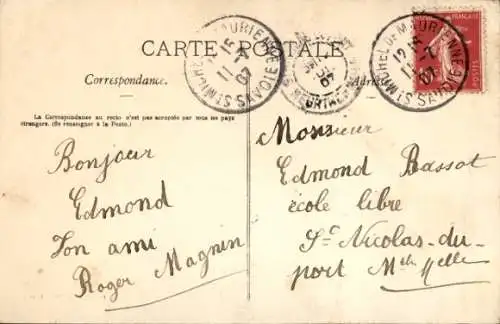 CARTE POSTALE
ST MICHEL DE MAURIENNE
SAVOIE
11
07
ST MICHEL DE MAURIENNE
SAVOIE
12
11
07
Correspondance.
La Correspondance au recto n'est pas acceptée par tous les pays
étrangers. (Se renseigner à la Poste.)
Bonjour
Edmond
Ton ami
Roger Magnin
Monsieur
Edmond Bassot
école libre
St Nicolas-du-
port Mthe Melle